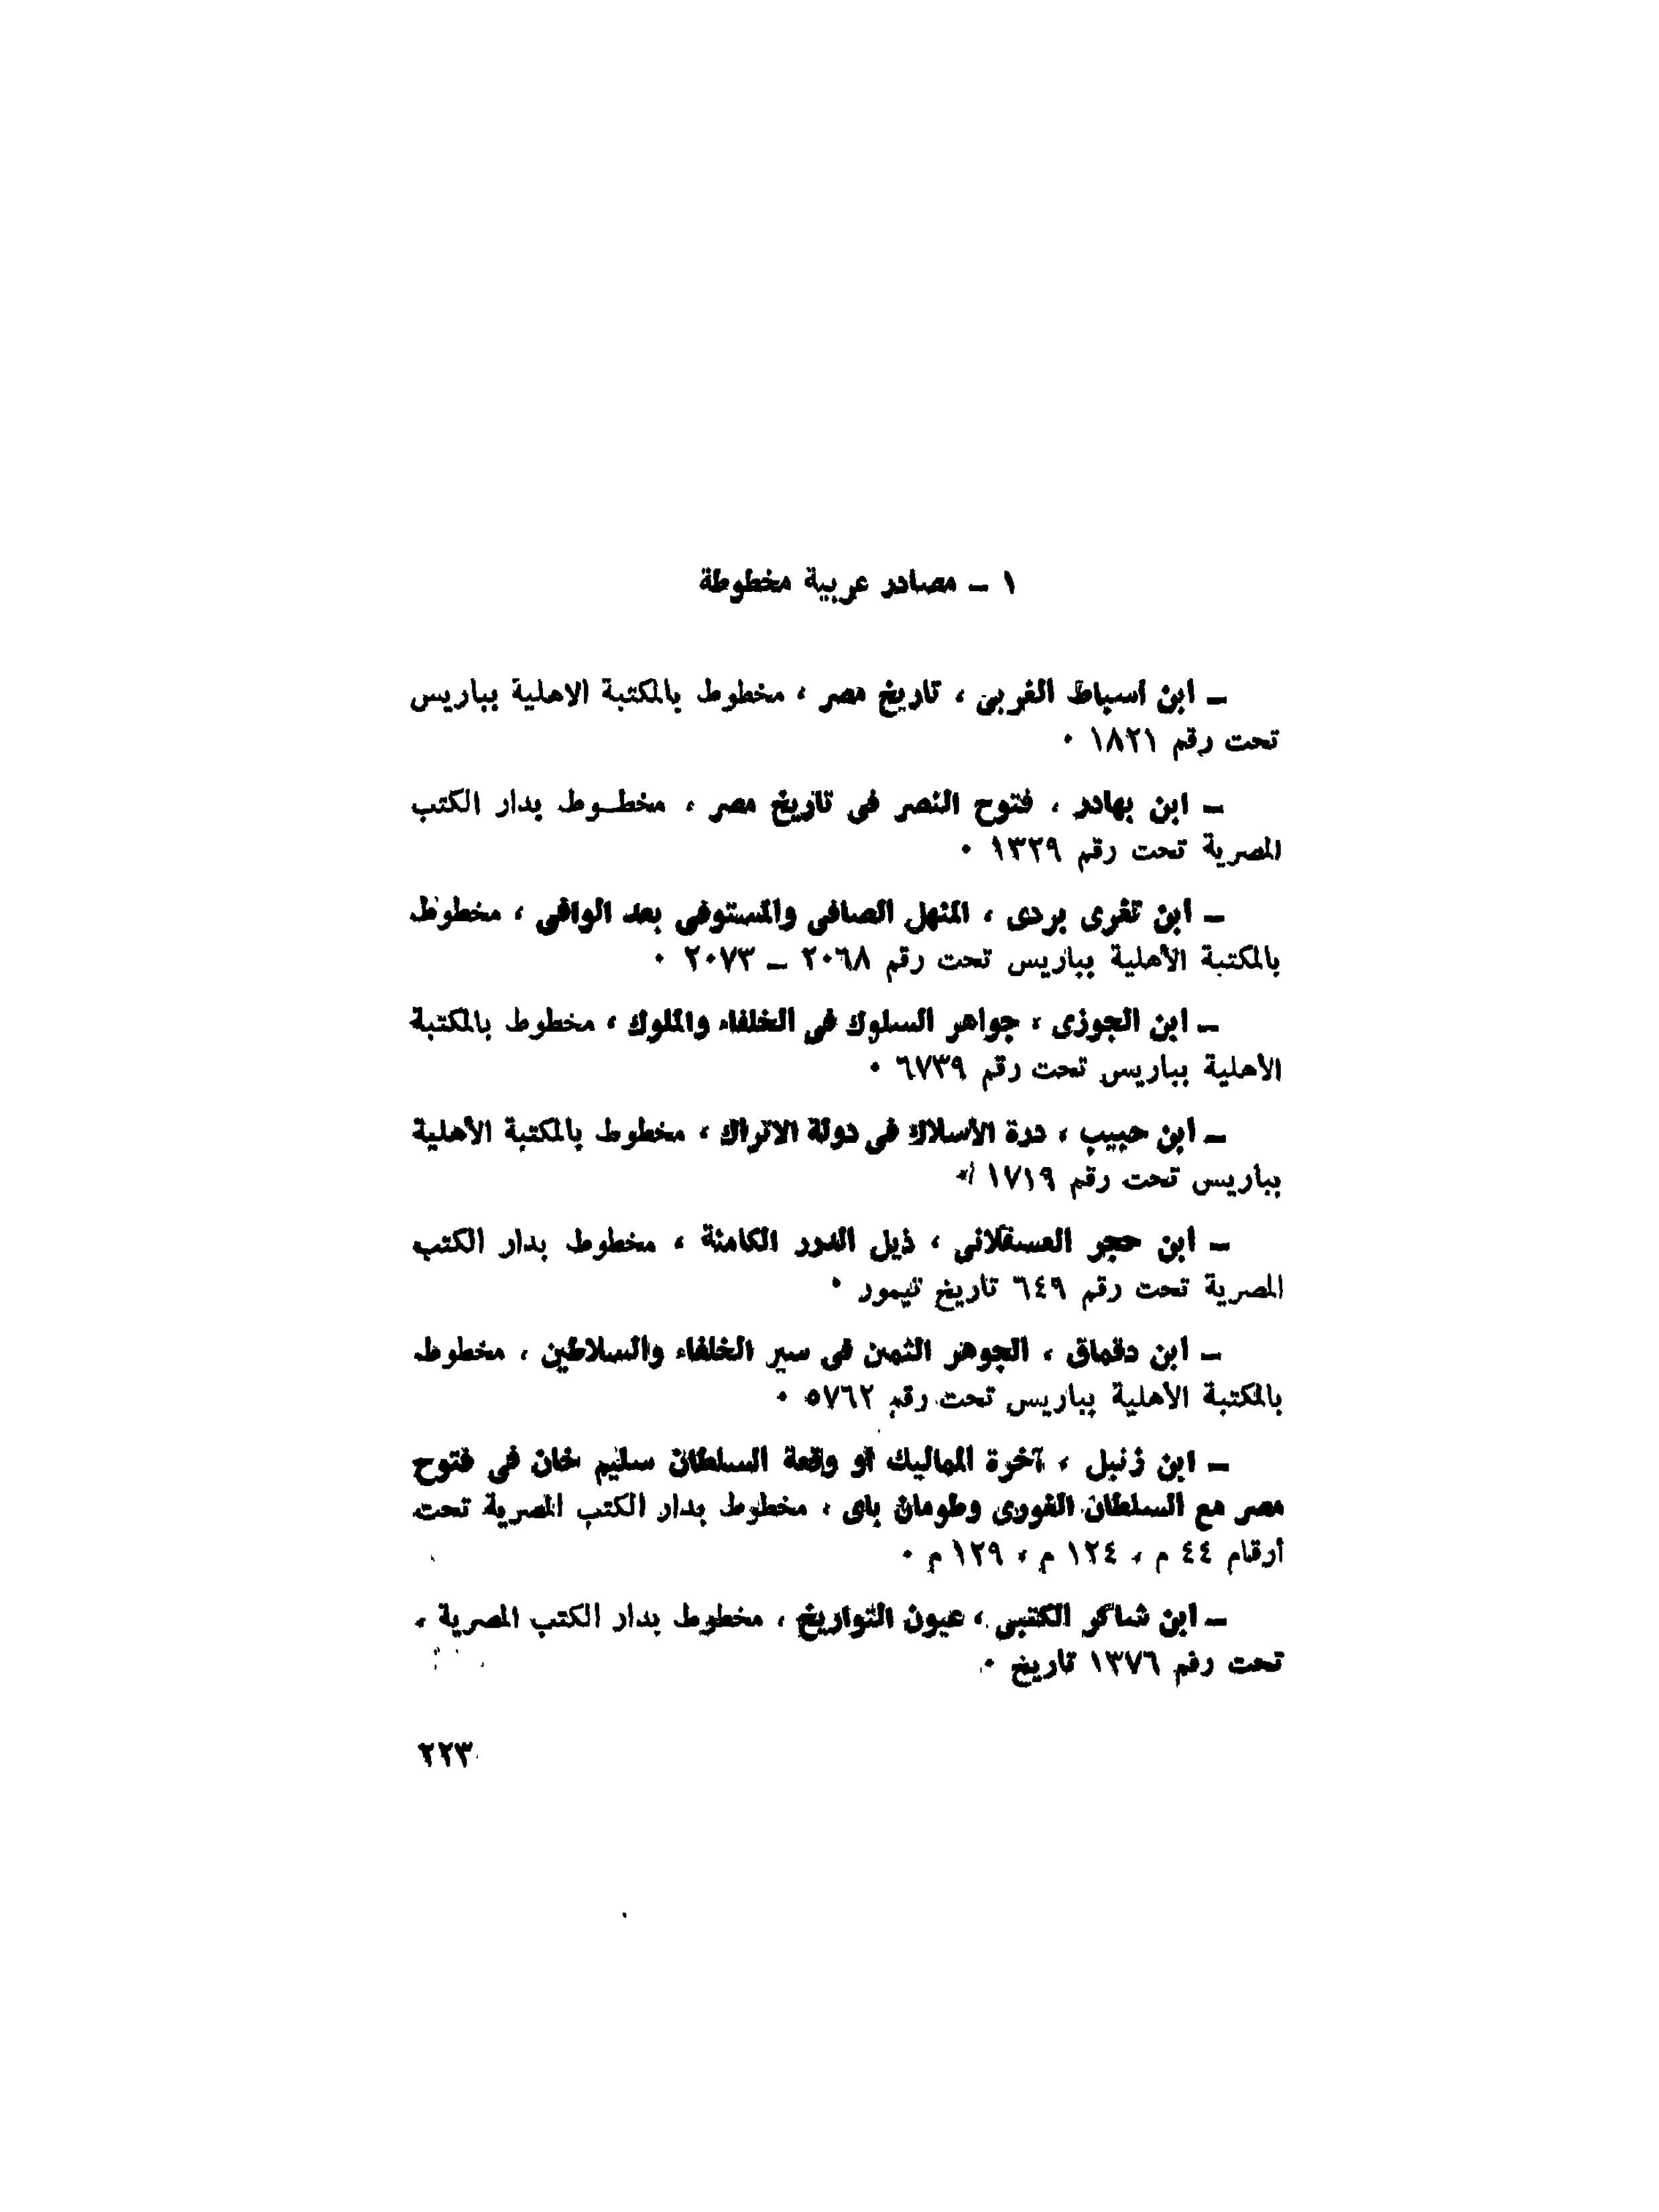 ١ – مصادر عربية مخطوطة
– ابن اسباط الغربى ، تاريخ مصر ، مخطوط بالمكتبة الاهلية بباريس
تحت رقم ١٨٢١ ٠
– ابن بهادر ، فتوح النصر فى تاريخ مصر ، مخطــوط بدار الكتب
المصرية تحت رقم ١٣٢٩ ٠
– ابن تغرى بردى ، المنهل الصافى والمستوفى بعد الوافى ، مخطوط
بالمكتبة الأهلية بباريس تحت رقم ٢٠٦٨ – ٢٠٧٣ ٠
– ابن الجوزى ، جواهر السلوك فى الخلفاء والملوك ، مخطوط بالمكتبة
الأهلية بباريس تحت رقم ٦٧٣٩ ٠
– ابن حبيب ، درة الأسلاك فى دولة الاتراك ، مخطوط بالمكتبة الأهلية
بباريس تحت رقم ١٧١٩ ٠
– ابن حجر العسقلانى ، ذيل الدرر الكامنة ، مخطوط بدار الكتب
المصرية تحت رقم ٦٤٩ تاريخ تيمور ٠
– ابن دقماق ، الجوهر الثمين فى سير الخلفاء والسلاطين ، مخطوط
بالمكتبة الأهلية بباريس تحت رقم ٥٧٦٢ ٠
– ابن زنبل ، آخرة المماليك أو واقعة السلطان سليم خان فى فتوح
مصر مع السلطان الغورى وطومان باى ، مخطوط بدار الكتب المصرية تحت
أرقام ٤٤ م ، ١٢٤ م ، ١٢٩ م ٠
– ابن شاكر الكتبى ، عيون التواريخ ، مخطوط بدار الكتب المصرية ،
تحت رقم ١٣٧٦ تاريخ ٠
٢٢٣